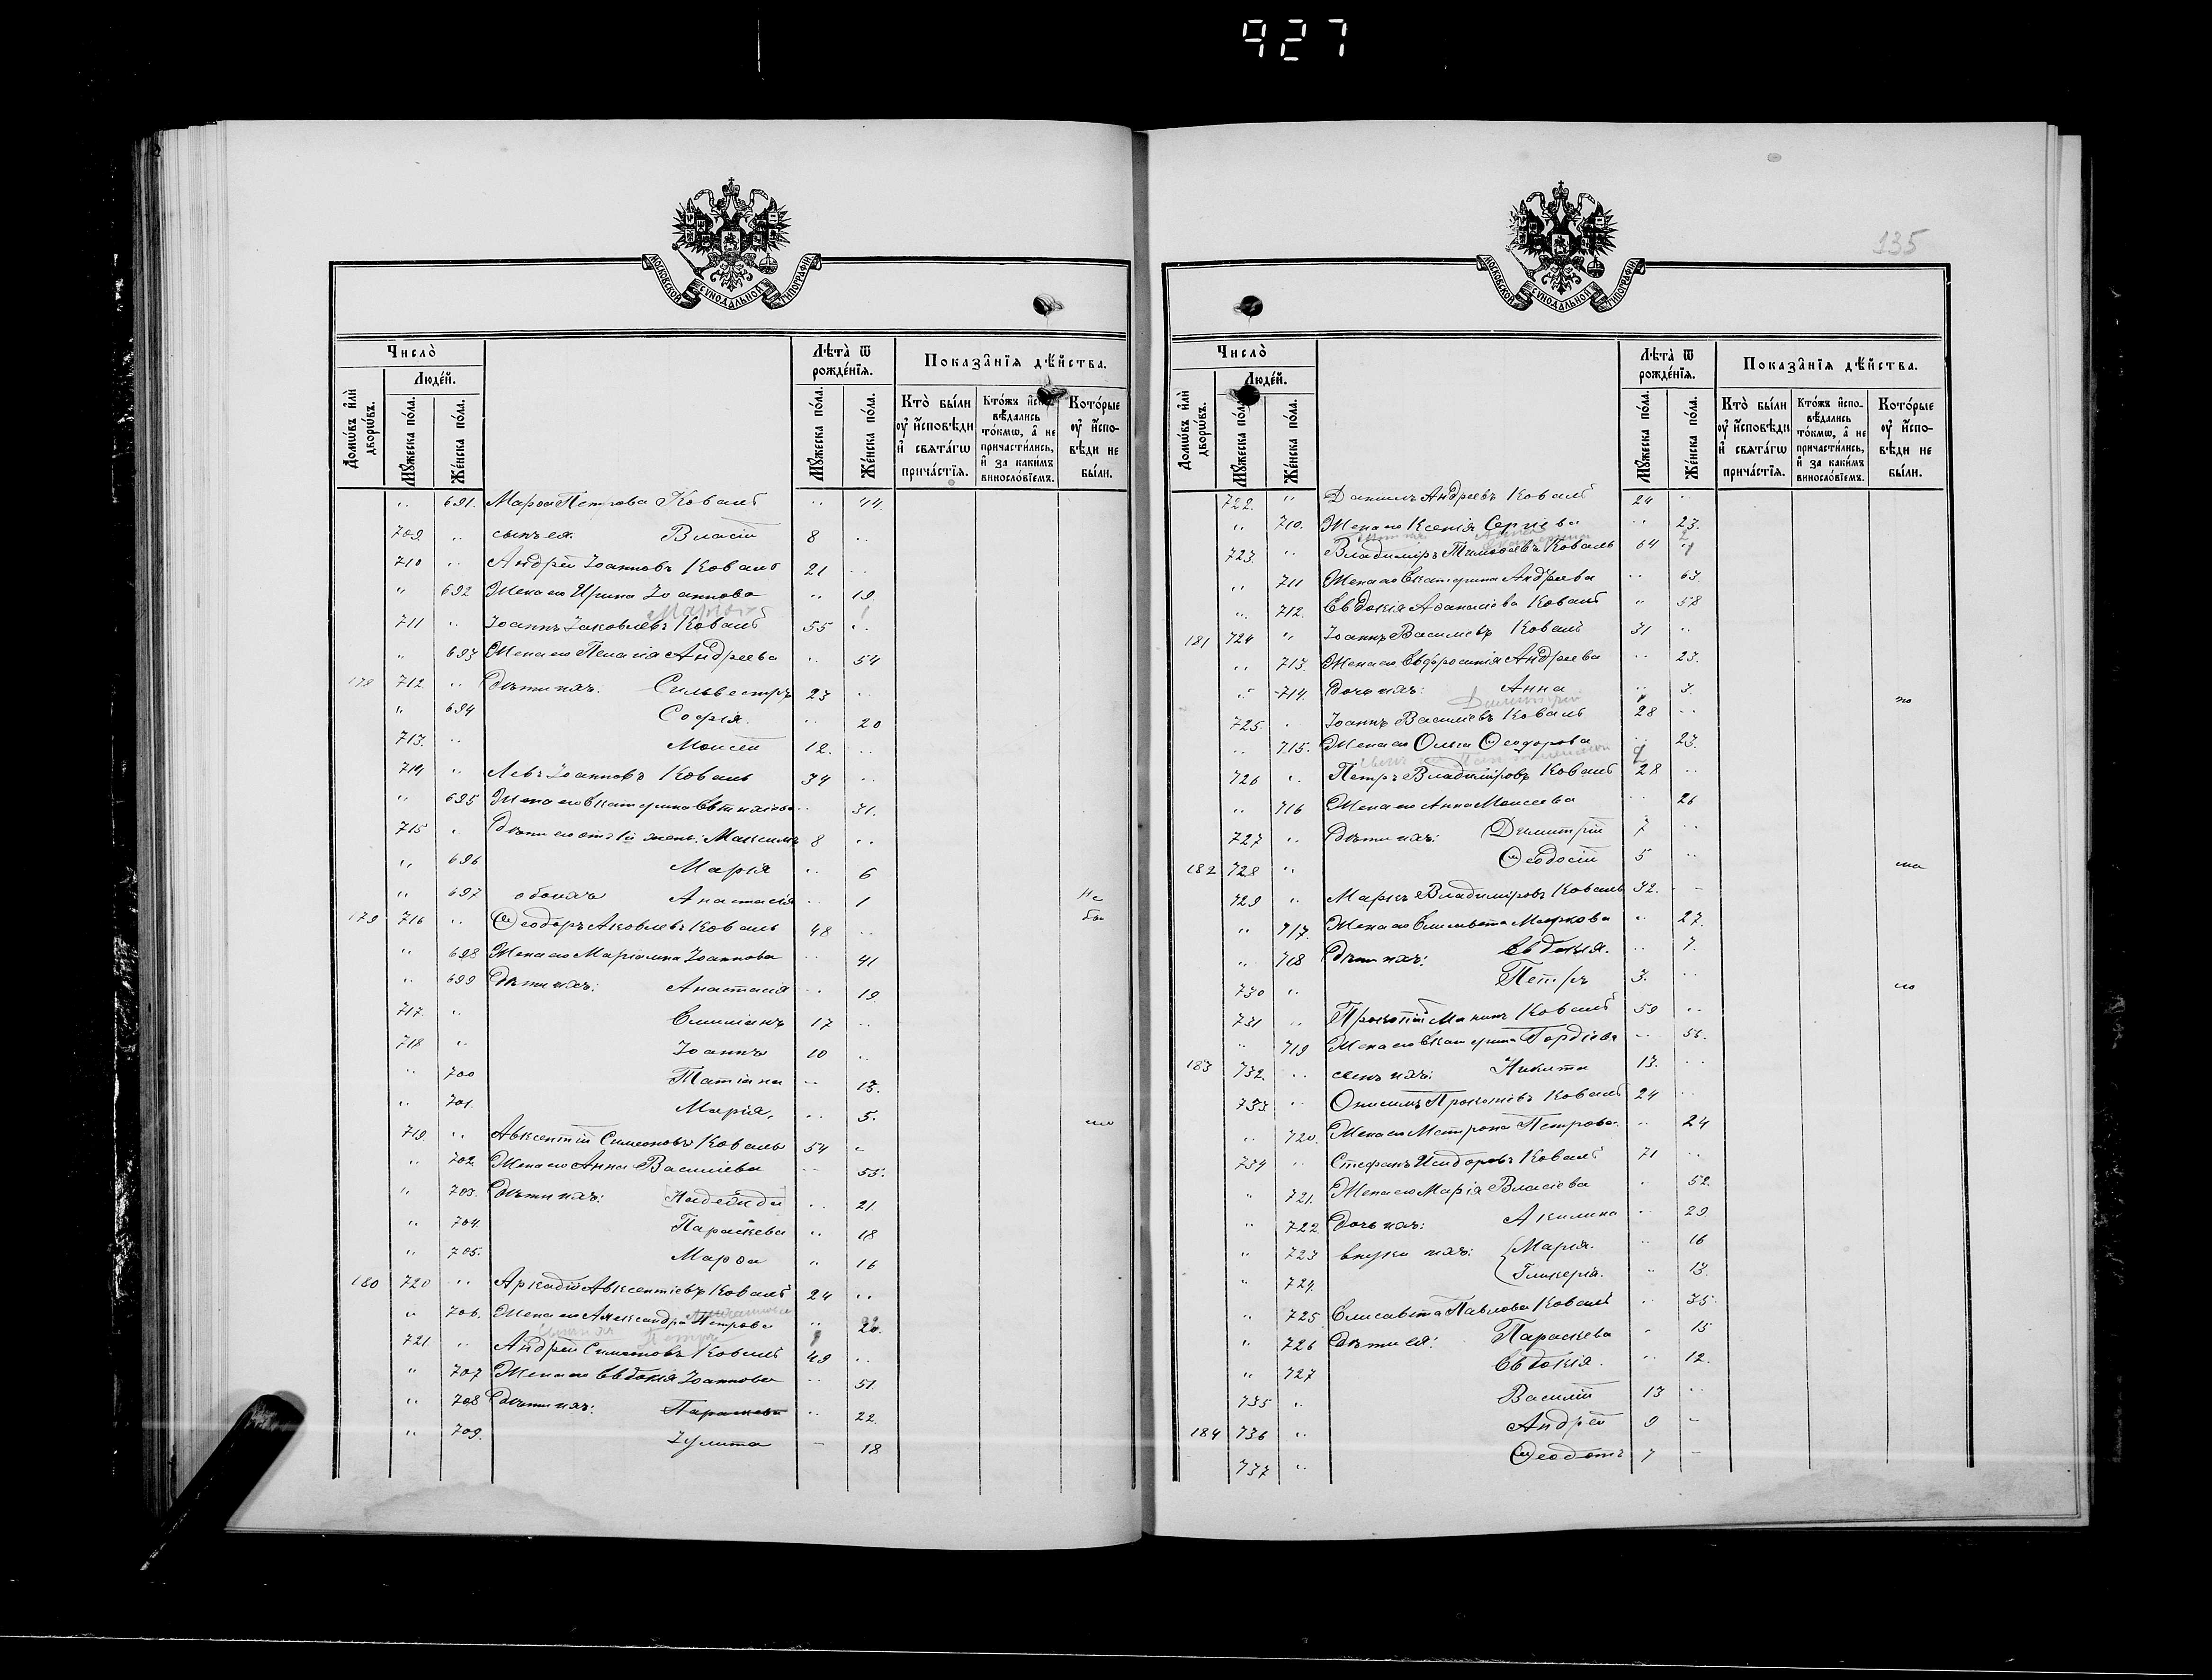 927
МОСКОВСКОЙ СѴНОДАЛЬНОЙ ТИПОГРАФІИ
Число̀
Людей.
Домѡ́въ и҆лѝ дворѡ́въ.
Мꙋ́жеска по́ла.
Же́нска по́ла.
Лѣ́та ѿ рожде́нїѧ.
Мꙋ́жеска по́ла.
Же́нска по́ла.
Показа̑нїѧ дѣ́йства.
Кто̀ бы́ли ᲂу҆ и҆сповѣ́ди и҆ свѧта́гѡ прича́стїѧ.
Кто́жъ и҆сповѣ́дались то́кмѡ, а҆ не причасти́лись, и҆ за каки́мъ винослові́емъ.
Кото́рые ᲂу҆ и҆сповѣ́ди не бы́ли.
„ 691. Марѳа Петрова Коваль „ 44.
709. „ сынъ ея: Власій 8 „
710 „ Андрей Іоанновъ Коваль 21 „
„ 692 Жена его Ирина Іоаннова „ 19.
711 „ Іоаннъ Іаковлевъ Коваль 55 „
„ 693 Жена его Пелагія Андреева „ 54
178 712. „ Дѣти ихъ: Сильвестръ 23 „
„ 694 Софія. „ 20
713. „ Моисей 12. „
714 „ Левъ Іоанновъ Коваль 34 „
„ 695 Жена его Екатерина Евтихіева „ 31.
715 „ Дѣти его отъ 1й жены: Максимъ 8 „
„ 696 Марія „ 6
„ 697 обоихъ Анастасія „ 1 Не
179 716 „ Ѳеодоръ Аковлевъ Коваль 48 „ бы
„ 698 Жена его Маріамна Іоаннова „ 41
„ 699 Дѣти ихъ: Анастасія „ 19
717. „ Емиліанъ 17 „
718 „ Іоаннъ 10 „
„ 700 Татіана „ 13.
„ 701. Марія, „ 5.
719. „ Авксентій Симеоновъ Коваль 54 „
„ 702. Жена его Анна Василіева „ 55.
„ 703. Дѣти ихъ: Надежда „ 21
„ 704. Параскева „ 18
„ 705. Марѳа „ 16
180 720 „ Аркадій Авксентіевъ Коваль 24 „
„ 706. Жена его Александра Петрова „ 20.
Петръ
721 „ Андрей Симеоновъ Коваль 49 „
„ 707 Жена его Евдокія Іоаннова „ 51.
„ 708 Дѣти ихъ: Параскева „ 22.
„ 709. Іулита „ 18
135
МОСКОВСКОЙ СѴНОДАЛЬНОЙ ТИПОГРАФІИ
Число̀
Людей.
Домѡ́въ и҆лѝ дворѡ́въ.
Мꙋ́жеска по́ла.
Же́нска по́ла.
Лѣ́та ѿ рожде́нїѧ.
Мꙋ́жеска по́ла.
Же́нска по́ла.
Показа̑нїѧ дѣ́йства.
Кто̀ бы́ли ᲂу҆ и҆сповѣ́ди и҆ свѧта́гѡ прича́стїѧ.
Кто́жъ и҆сповѣ́дались то́кмѡ, а҆ не причасти́лись, и҆ за каки́мъ винослові́емъ.
Кото́рые ᲂу҆ и҆сповѣ́ди не бы́ли.
722. „ Даниилъ Андреевъ Коваль 24 „
„ 710. Жена его Ксенія Сергіева „ 23.
723. „ Владиміръ Тимоѳеевъ Коваль 64 „
„ 711 Жена его Екатерина Андреева „ 63.
„ 712. Евдокія Аѳанасіева Коваль „ 58
181 724 „ Іоаннъ Василіевъ Коваль 31 „
„ 713. Жена его Евфросинія Андреева „ 23.
„ 714. Дочь ихъ: Анна „ 3.
Димитрій
725. „ Іоаннъ Василіевъ Коваль 28 „
„ 715. Жена его Ольга Ѳеодорова „ 23.
726 „ Петръ Владиміровъ Коваль 28 „
„ 716 Жена его Анна Моисеева „ 26
727 „ Дѣти ихъ: Димитрій 7 „
182 728 „ Ѳеодосій 5 „
729 „ Маркъ Владиміровъ Коваль 32. „
„ 717. Жена его Елисавета Маркова „ 27.
„ 718 Дѣти ихъ: Евдокія. „ 7.
730 „ Петръ 3. „
731 „ Прокопій Коваль 59 „
„ 719 Жена его Екатерина Гордіева „ 56.
183 732. „ сынъ ихъ: Никита 13. „
733 „ Онисимъ Прокопіевъ Коваль 24 „
„ 720. Жена его Матрона Петрова. „ 24
734 „ Стефанъ Исидоровъ Коваль 71 „
„ 721. Жена его Марія Власіева „ 52.
„ 722. Дочь ихъ: Акилина „ 29
„ 723 внуки ихъ: Марія. „ 16
„ 724. Гликерія. „ 13.
„ 725 Елисавета Павлова Коваль „ 35.
„ 726 Дѣти ея: Параскева „ 15
„ 727 Евдокія. „ 12.
735 „ Василій 13 „
184 736 „ Андрей 9 „
737 „ Ѳеодотъ 7 „